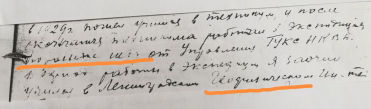 в 1929г. поехал учиться в техникум, и после
окончания техникума работал в экспедиции
от Управления ГУКС НКВД.
работы в экспедиции я заочно
учился в Ленинградском Геодезическом Ин-те